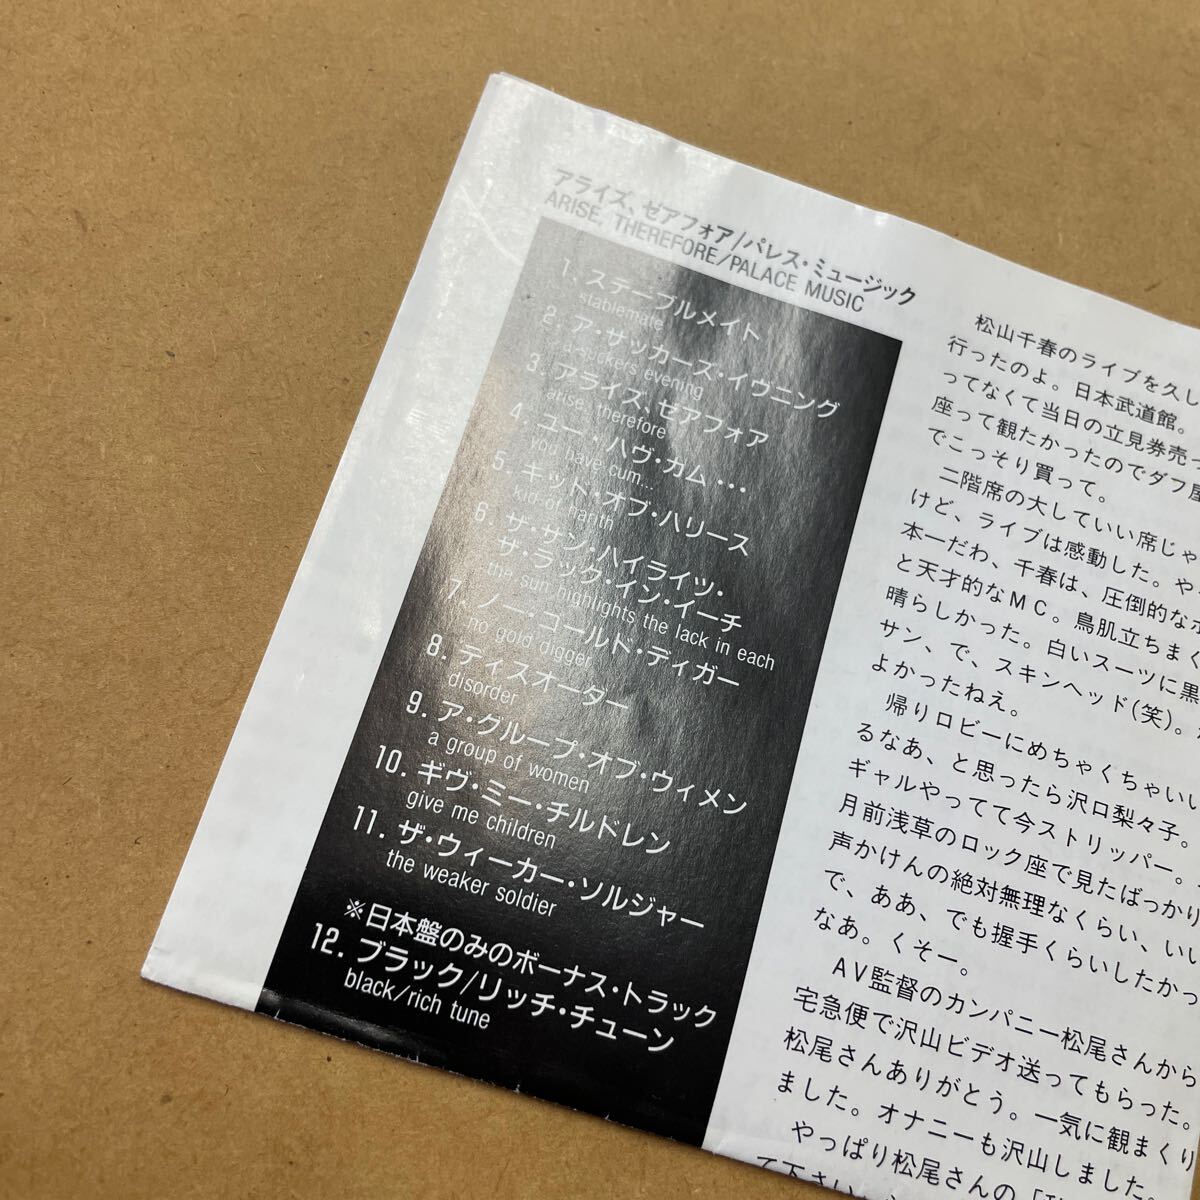 アライズ、ゼアフォア/パレス・ミュージック
ARISE, THEREFORE/PALACE MUSIC
1. ステーブルメイト
stablemate
2. ア・サッカーズ・イヴニング
a suckers evening
3. アライズ、ゼアフォア
arise, therefore
4. ユー・ハヴ・カム・・・
you have cum...
5. キッド・オブ・ハリース
kid of harith
6. ザ・サン・ハイライツ・
ザ・ラック・イン・イーチ
the sun highlights the lack in each
7. ノー・ゴールド・ディガー
no gold digger
8. ディスオーダー
disorder
9. ア・グループ・オブ・ウィメン
a group of women
10. ギヴ・ミー・チルドレン
give me children
11. ザ・ウィーカー・ソルジャー
the weaker soldier
※日本盤のみのボーナス・トラック
12. ブラック/リッチ・チューン
black/rich tune
松山千春のライブを久し
行ったのよ。日本武道館。
ってなくて当日の立見券売っ
座って観たかったのでダフ屋
でこっそり買って。
二階席の大していい席じゃ
けど、ライブは感動した。や
本一だわ、千春は、圧倒的な
と天才的なMC。鳥肌立ちまく
晴らしかった。白いスーツに黒
サン、で、スキンヘッド(笑)。
よかったねえ。
帰りロビーにめちゃくちゃいい
るなあ、と思ったら沢口梨々子。
ギャルやってて今ストリッパー。
月前浅草のロック座で見たばっかり
声かけんの絶対無理なくらい、いい
で、ああ、でも握手くらいしたかっ
なあ。くそー。
AV監督のカンパニー松尾さんから
宅急便で沢山ビデオ送ってもらった。
松尾さんありがとう。一気に観まくり
ました。オナニーも沢山しました。
やっぱり松尾さんの
て下さい。